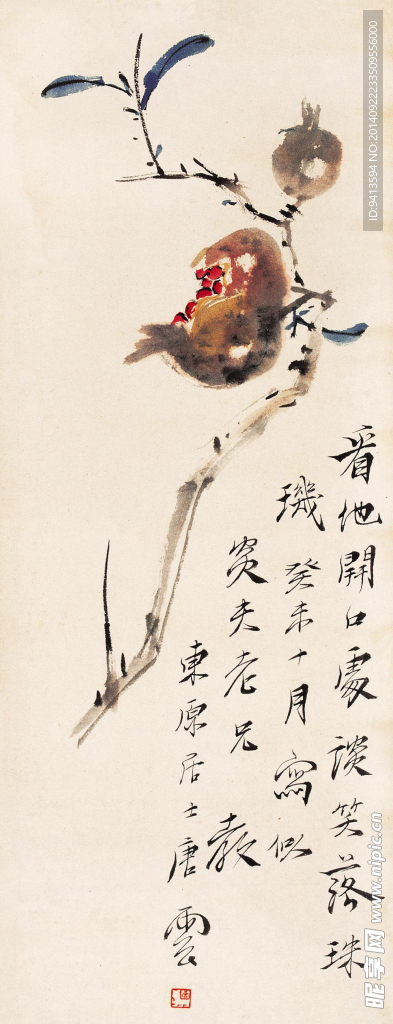 看他開口處談笑落珠
璣 癸未十月寫似
夫老兄 教
東原居士唐雲
ID:9413594 NO:20140922233509556000
昵享网 www.nipic.cn